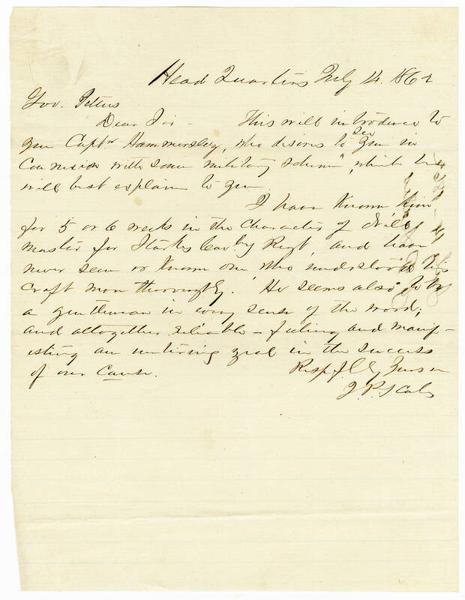 Head Quarters July 14. 1862
Gov. Pettus
Dear Sir - This will introduce to
you Captn Hammersley, who desires to
see
you in
Connexion with some military scheme", which he
will best explain to you
I have known him
for 5 or 6 weeks in the character of Drill
master for Starkes Cavly Regt, and have
never seen or known one who understood his
craft more thoroughly. He seems also to be
a gentleman in every sense of the word,
and altogether reliable - feeling and manif-
esting an untiring zeal in the success
of our Cause.
Respflly Yours
J. P. Scales